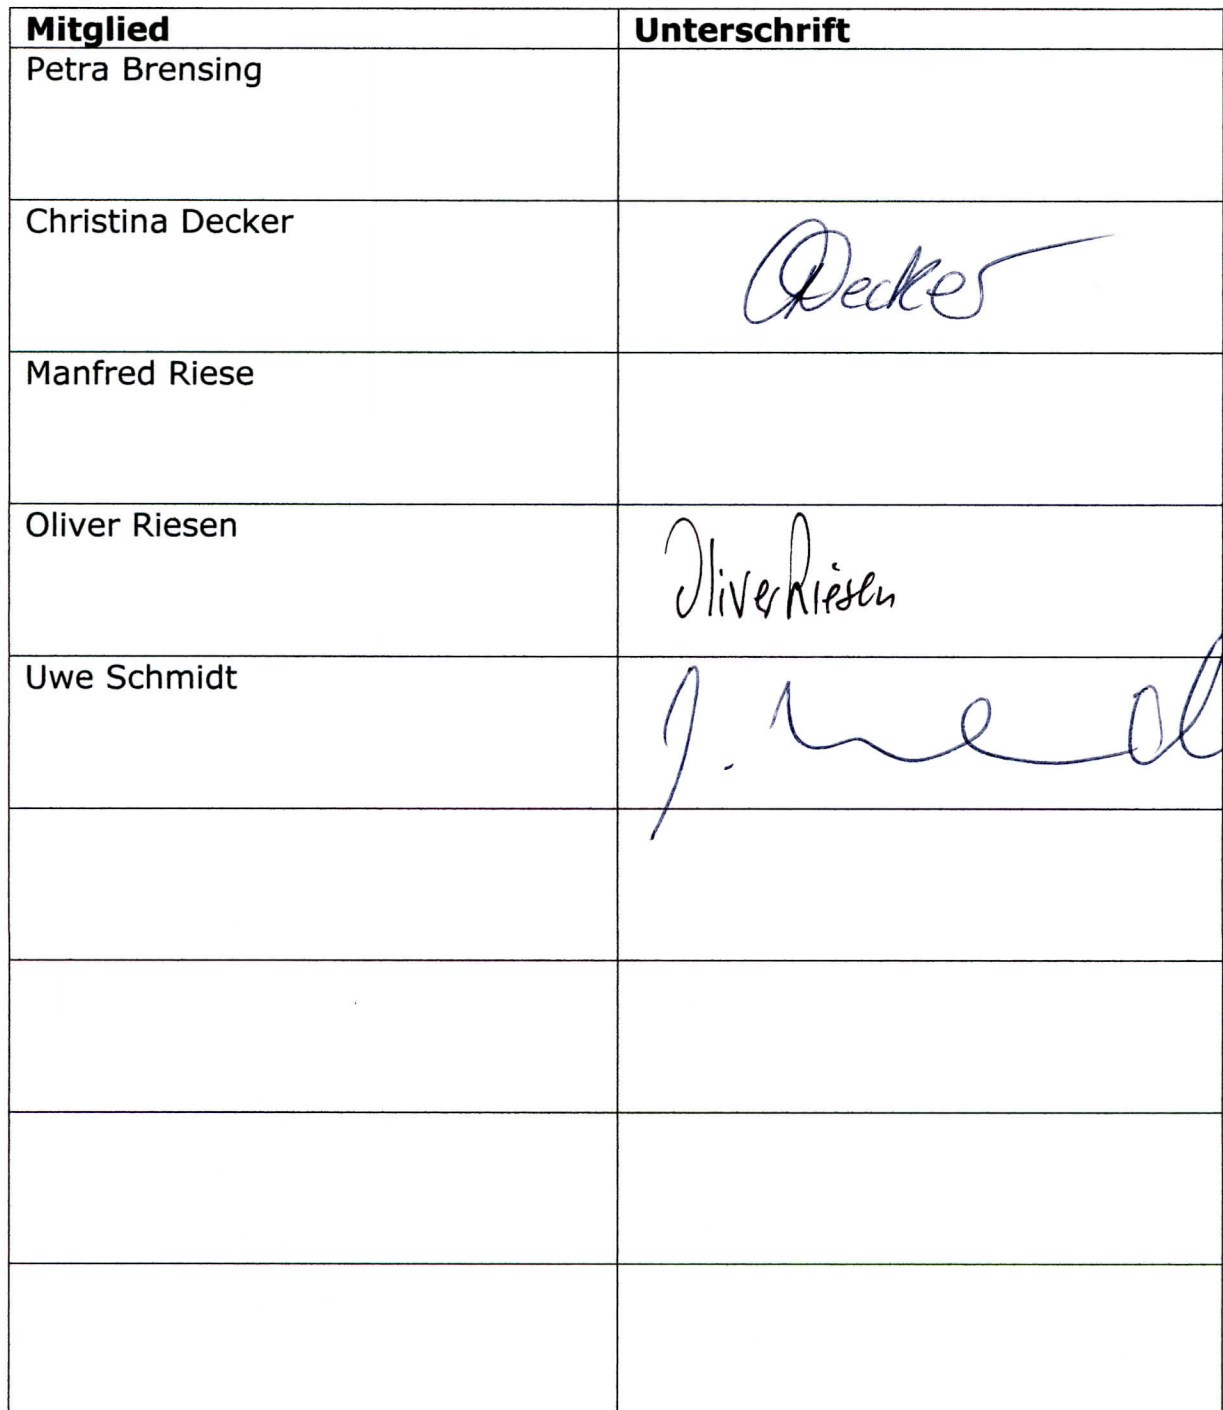 Mitglied Unterschrift
Petra Brensing
Christina Decker
CDecker
Manfred Riese
Oliver Riesen
Oliver Riesen
Uwe Schmidt